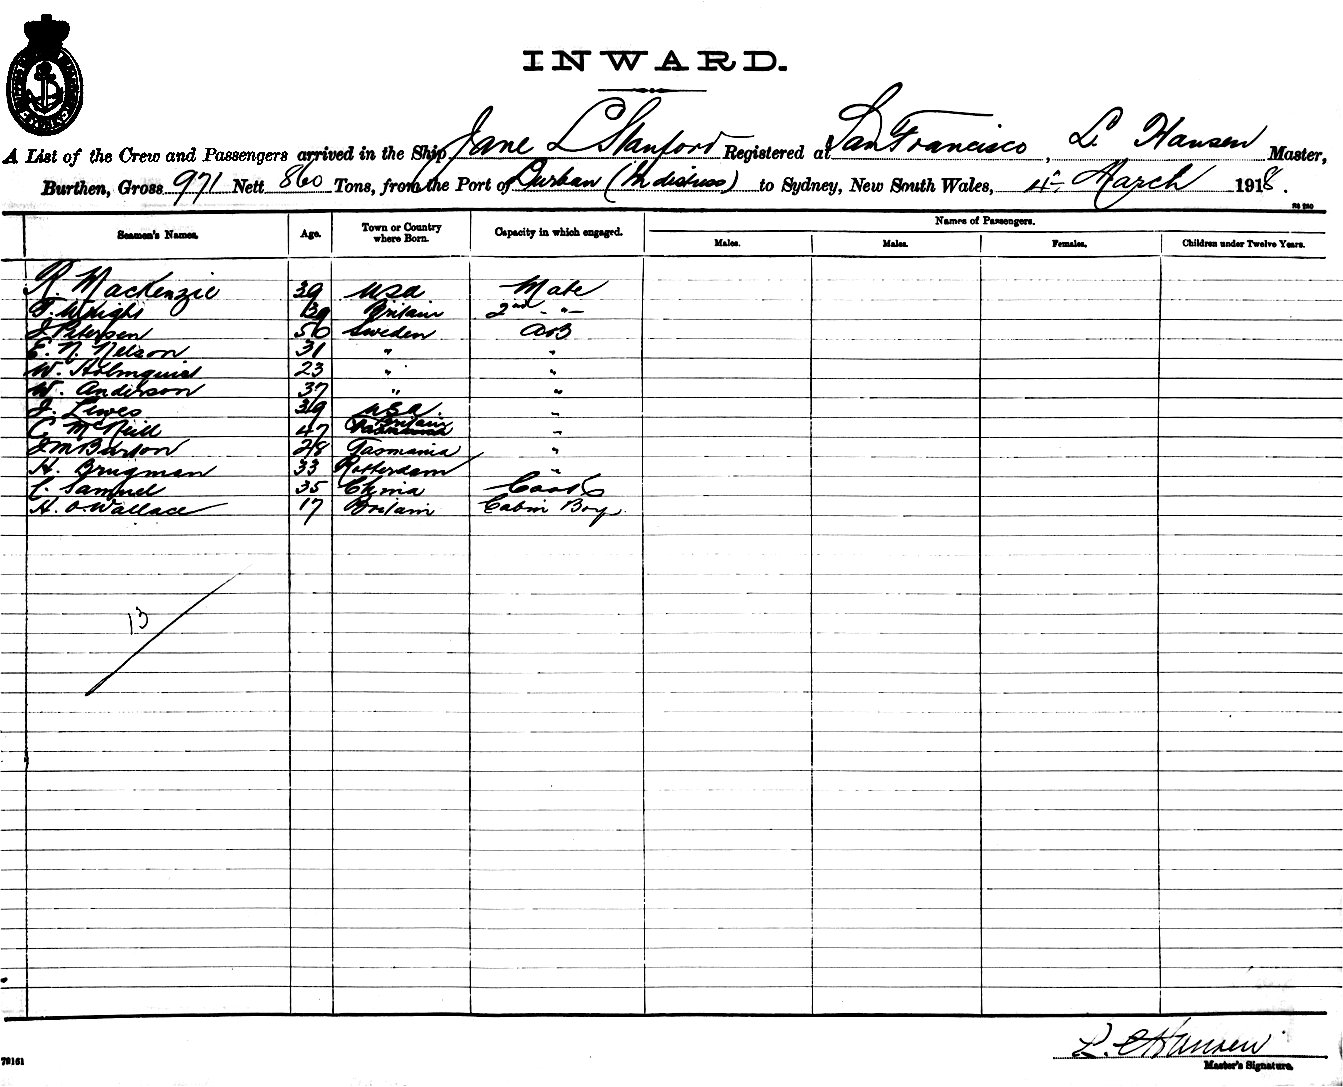 INWARD.
A List of the Crew and Passengers arrived in the Ship Jane L Stanford Registered at San Francisco, L. Hansen Master,
Burthen, Gross 971 Nett 860 Tons, from the Port of Durban (In distress) to Sydney, New South Wales, 4th March 1918.
Seamen's Names. Age. Town or Country where Born. Capacity in which engaged. Names of Passengers.
Males. Males. Females. Children under Twelve Years.
R. MacKenzie 39 USA Mate
T. Wright 39 Britain 2nd "
J. Petersen 56 Sweden AB
E. N. Nelson 31 " "
W. Holmquist 23 " "
W. Anderson 37 " "
J. Lewes 39 USA. "
C McNeill 47 Britain "
J M Burton 28 Tasmania "
H. Brugman 33 Rotterdam "
C. Samuel 35 China Cook
H. O. Wallace 17 Britain Cabin Boy
13
L. C Hansen
Master's Signature.
79161